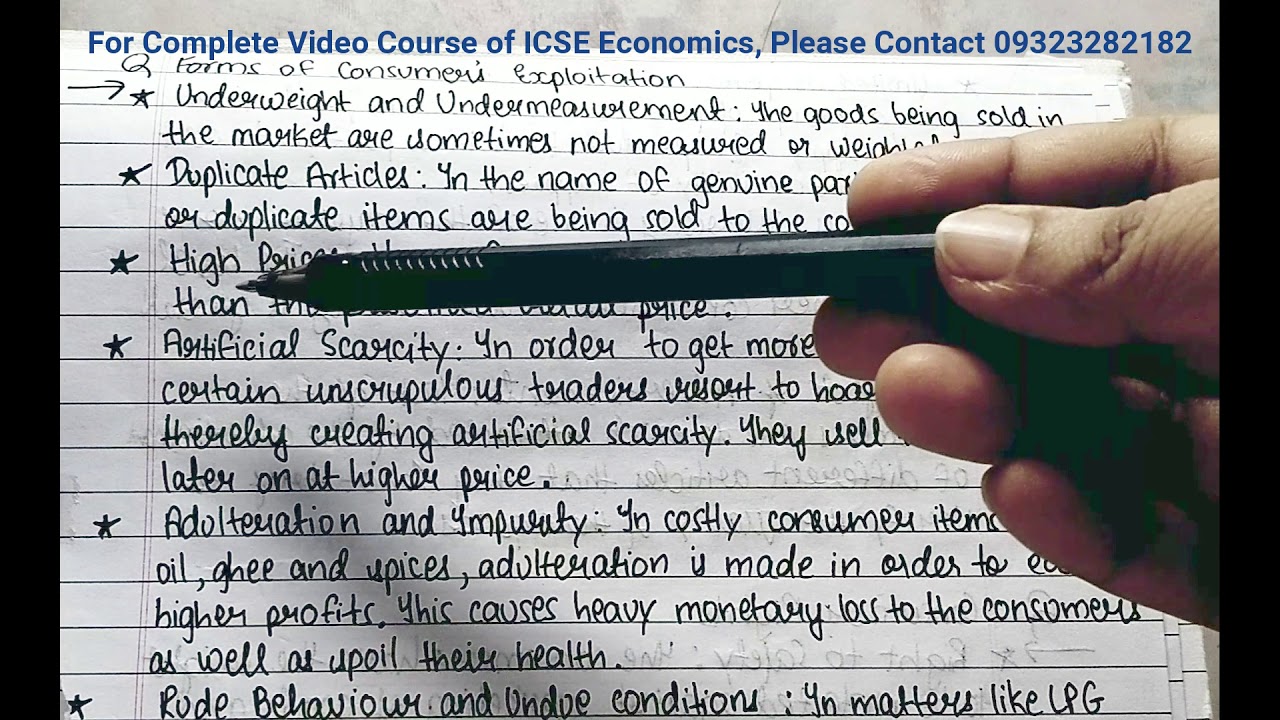 For Complete Video Course of ICSE Economics, Please Contact 09323282182
Q Forms of Consumer's Exploitation
→ ★ Underweight and Undermeasurement: The goods being sold in
the market are sometimes not measured or
★ Duplicate Articles: In the name of genuine
or duplicate items are being sold to the
★ High
than price.
★ Artificial Scarcity: In order to get more
certain unscrupulous traders resort to
thereby creating artificial scarcity. They sell
later on at higher price.
★ Adulteration and Impurity: In costly consumer
oil, ghee and spices, adulteration is made in order to
higher profits. This causes heavy monetary loss to the consumers
as well as spoil their health.
★ Rude Behaviour and Undue conditions: In matters like LPG